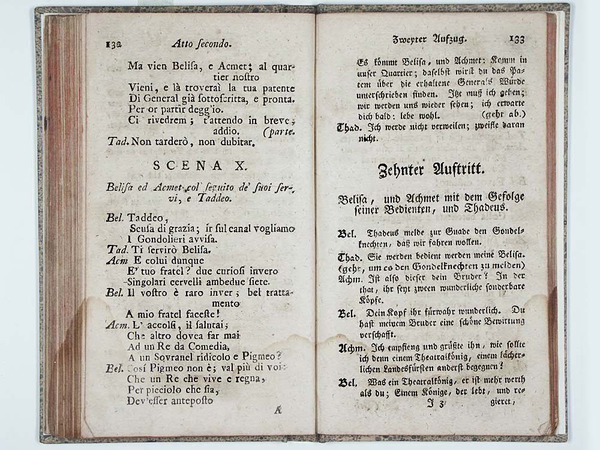 132 Atto secondo.
Ma vien Belisa, e Acmet; al quar-
tier nostro
Vieni, e là troverai la tua patente
Di General già sottoscritta, e pronta.
Per or partir degg'io.
Ci rivedrem; t'attendo in breve,
addio. (parte.
Tad. Non tarderò, non dubitar.
SCENA X.
Belisa ed Acmet col seguito de' suoi ser-
vi, e Taddeo.
Bel. Taddeo,
Scusa di grazia; ir sul canal vogliamo
I Gondolieri avvisa.
Tad. Ti servirò Belisa.
Acm E colui dunque
E' tuo fratel? due curiosi invero
Singolari cervelli ambedue siete.
Bel. Il vostro è raro inver; bel tratta-
mento
A mio fratel faceste!
Acm. L' accolsi, il salutai;
Che altro dovea far mai
Ad un Re da Comedia,
A un Sovranel ridicolo e Pigmeo?
Bel. Così Pigmeo non è; val più di voi
Che un Re che vive e regna,
Per picciolo che sia,
Dev'esser anteposto
A
Zweyter Aufzug. 133
Es kömmt Belisa, und Achmet: Komm in
unser Quartier; daselbst wirst du das Pa-
tent über die erhaltene Generals Würde
unterschrieben finden. Itzt muß ich gehen;
wir werden uns wieder sehen; ich erwarte
dich bald: lebe wohl. (geht ab.)
Thad. Ich werde nicht verweilen; zweifle daran
nicht.
Zehnter Auftritt.
Belisa, und Achmet mit dem Gefolge
seiner Bedienten, und Thadeus.
Bel. Thadeus melde zur Gnade den Gondel-
knechten, daß wir fahren wollen.
Thad. Sie werden bedient werden meine Belisa.
(gehr, um es den Gondelknechten zu melden)
Achm. Ist also dieser dein Bruder? In der
that, ihr seyt zween wunderliche sonderbare
Köpfe.
Bel. Dein Kopf ihr fürwahr wunderlich. Du
hast meinem Bruder eine schöne Bewirtung
verschafft.
Achm. Ich empfieng und grüßte ihn, wie sollte
ich denn einem Theatralkönig, einem lächer-
lichen Landesfürsten anderst begegnen?
Bel. Was ein Theatralkönig, er ist mehr werth
als du; Einem Könige, der lebt, und re-
I 3 gieret,